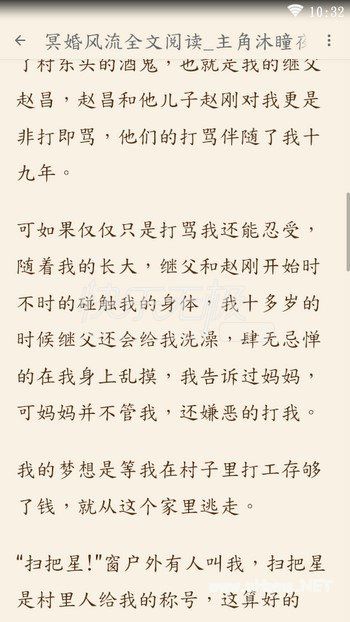 10:32
冥婚风流全文阅读_主角沐瞳夜
了村东头的酒鬼，也就是我的继父
赵昌，赵昌和他儿子赵刚对我更是
非打即骂，他们的打骂伴随了我十
九年。
可如果仅仅只是打骂我还能忍受，
随着我的长大，继父和赵刚开始时
不时的碰触我的身体，我十多岁的
时候继父还会给我洗澡，肆无忌惮
的在我身上乱摸，我告诉过妈妈，
可妈妈并不管我，还嫌恶的打我。
我的梦想是等我在村子里打工存够
了钱，就从这个家里逃走。
“扫把星!”窗户外有人叫我，扫把星
是村里人给我的称号，这算好的